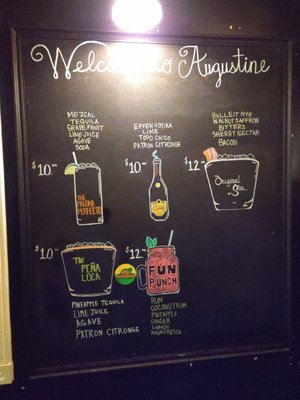 Welcome to Augustine
MEZCAL
TEQUILA
GRAPEFRUIT
LIME JUICE
AGAVE
SODA
$10.00
THE
PALOMA
PERFECTO
EFFEN VODKA
LIME
TOPO CHICO
PATRON CITRONGE
$10.00
BULLEIT RYE
WALNUT SAFFRON
BITTERS
SHERRY NECTAR
BACON
$12.00
Original
Sin
$10.00
THE
PIÑA
LOCA
PINEAPPLE TEQUILA
LIME JUICE
AGAVE
PATRON CITRONGE
$12.00
FUN
PUNCH
RUM
COCONUT RUM
PINEAPPLE
GINGER
LEMON
AGUA FRESCA